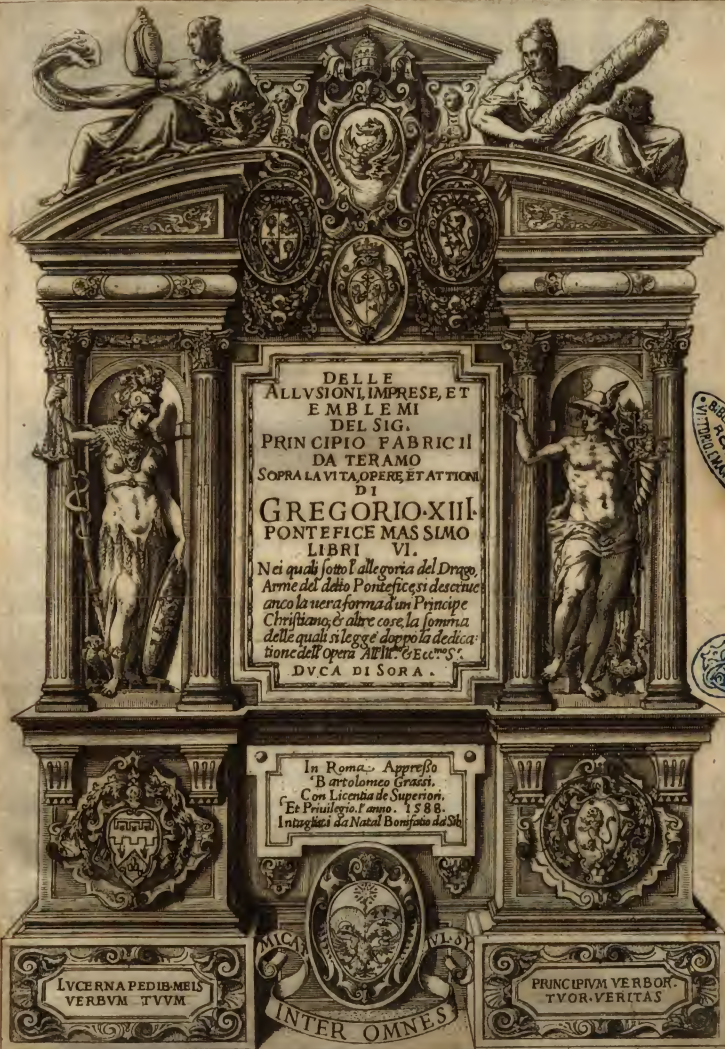 DELLE
ALLVSIONI, IMPRESE, ET
EMBLEMI
DEL SIG.
PRINCIPIO FABRICII
DA TERAMO
SOPRA LA VITA, OPERE, ET ATTIONI
DI
GREGORIO·XIII·
PONTEFICE MASSIMO
LIBRI VI.
Nei quali sotto l'allegoria del Drago,
Arme del detto Pontefice, si descriue
anco la uera forma d'un Principe
Christiano, & altre cose, la somma
delle quali si legge doppo la dedica-
tione dell'Opera All'Ill.mo & Ecc.mo S.r
DVCA DI SORA.
In Roma. Appresso
Bartolomeo Grassi.
Con Licentia de Superiori,
Et Priuilegio, l'anno. 1588.
Intagliati da Natal Bonifatio da Sib.
MICAT
INTER OMNES
LVCERNA PEDIB·MEIS
VERBVM TVVM
PRINCIPIVM VERBOR.
TVOR·VERITAS